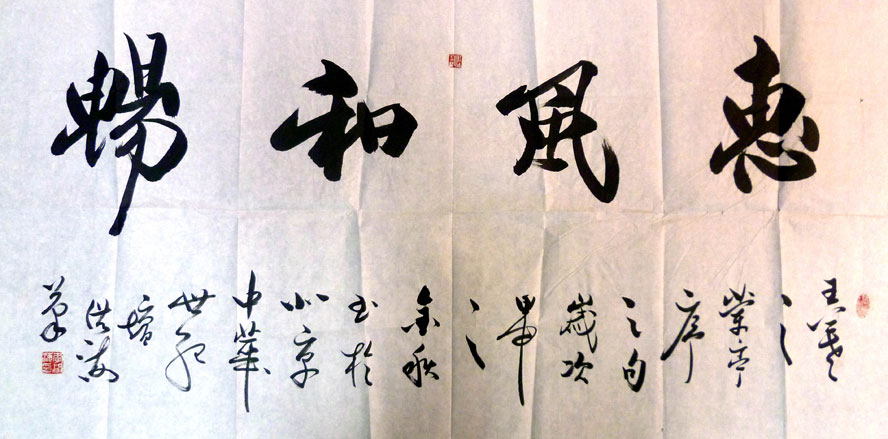 惠風和暢
王羲
之
蘭亭
序
之句
歲次
之
金秋
书於
北京
中華
世紀
壇
洪海